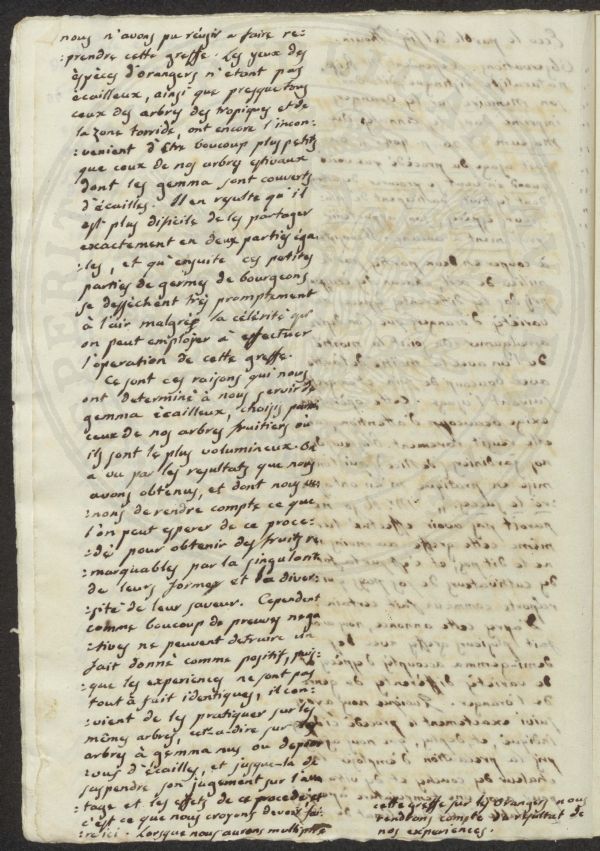 nous n'avons pu réussir a faire re-
:prendre cette greffe. Les yeux des
espèces d'orangers n'etant pas
ecailleux, ainsi que presque tous
ceux des arbres des tropiques et de
la zone torride, ont encore l'incon-
:venient d'être boucoup plus petits
que ceux de nos arbres estivaux
dont les gemma sont couverts
d'écailles. Il en resulte qu'il
est plus dificile de les partager
exactement en deux parties éga-
les, et qu'ensuite ces petites
parties de germes de bourgeons
se dessèchent très promptement
à l'air malgrés la célérité qu'
on peut employer à effectuer
l'operation de cette greffe.
Ce sont ces raisons qui nous
ont determiné à nous servir de
gemma écailleux, choisis parmi
ceux de nos arbres fruitiers où
ils sont le plus volumineux. On
a vu par les resultats que nous
avons obtenus, et dont nous ve-
:nons de rendre compte ce que
l'on peut esperer de ce proce-
:dé pour obtenir des fruits re-
:marquables par la singularité
de leurs formes et la diver-
:sité de leur saveur. Cependent
comme boucoup de preuves nega
:tives ne peuvent detruire un
fait donné comme positif, puis-
:que les experiences ne sont pas
tout à fait identiques, il con-
:vient de les pratiquer sur les
mêmes arbres, est-a-dire sur des
arbres à gemma nus ou depour
:vus d'écailles, et jusque-là de
suspendre son jugement sur l'avan
:tage et les effets de ce procedé et
c'est ce que nous croyons devoir fai-
:re ici. Lorsque nous aurons multiplié
cette greffe sur les orangers nous
rendrons compte du résultat de
nos experiences.